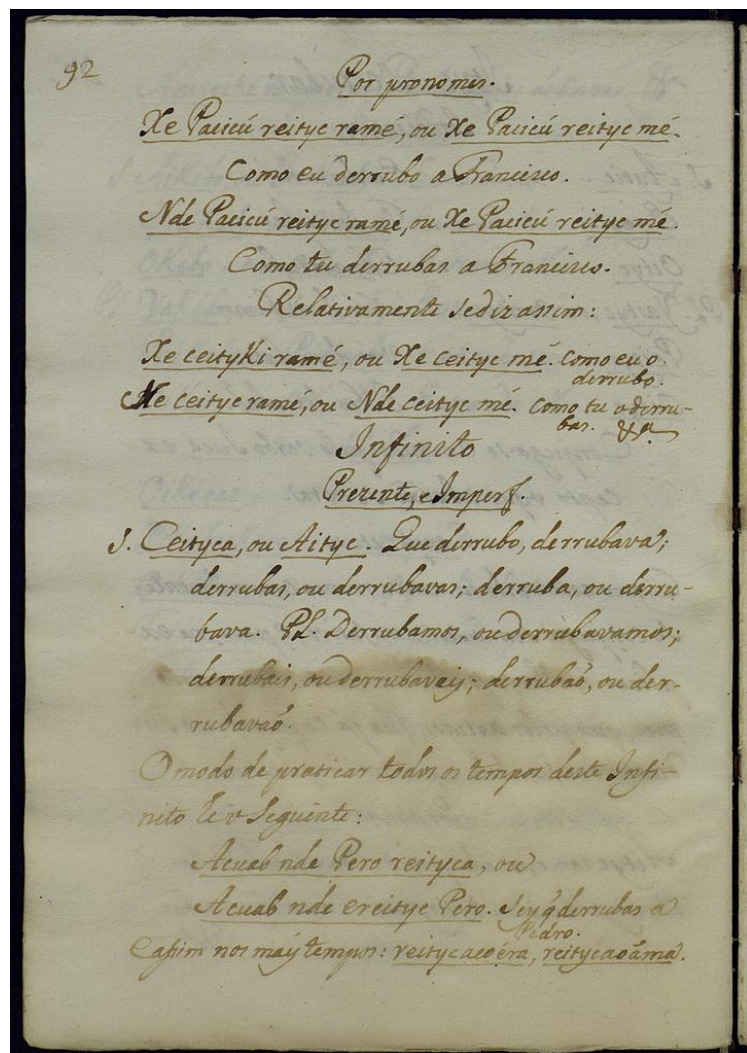 92
Por pronomes.
Xe Pacicú reityc ramé, ou Xe Pacicú reityc mé.
Como eu derrubo a Francisco.
Nde Pacicú reityc ramé, ou Xe Pacicú reityc mé.
Como tu derrubas a Francisco.
Relativamente se diz assim:
Xe ceityKi ramé, ou Xe ceityc mé. Como eu o
derrubo.
Ne ceityc ramé, ou Nde ceityc mé. Como tu o derru-
bas. &ª.
Infinito
Prezente, e Imperf.
S. Ceityca, ou Aityc. Que derrubo, derrubava;
derrubas, ou derrubavas; derruba, ou derru-
bava. Pl. Derrubamos, ou derrubavamos;
derrubais, ou derrubaveis; derrubaõ, ou der-
rubavaõ.
O modo de praticar todos os tempos deste Infi-
nito he o seguinte:
Acuab nde Pero reityca, ou
Acuab nde ereityc Pero. Sey q̃ derrubas a
Pedro.
E assim nos mais tempos: reitycacoéra, reitycaoáma.